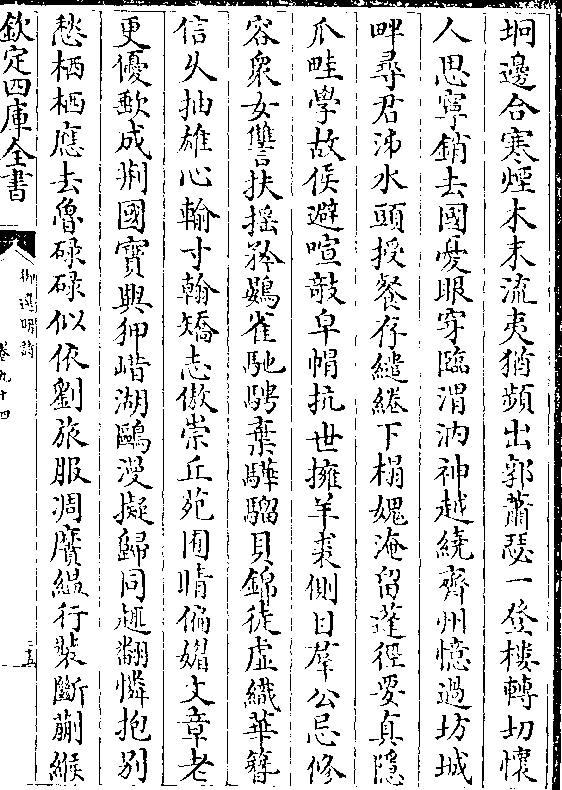 坰邊合寒煙木末流夷猶頻出郭蕭瑟一登樓轉切懷
人思寧銷去國憂眼穿臨渭汭神越繞齊州憶過坊城
畔尋君泲水頭授餐存繾綣下榻媿淹留蓬徑要真隱
瓜畦學故侯避喧敧皁帽抗世擁羊裘側目羣公忌修
容衆女讐扶摇矜鷃雀馳騁棄驊騮貝錦徒虛織華簪
信乆抽雄心輸寸翰矯志傲崇丘苑囿晴偏媚文章老
更優歜成荆國寶興狎㟙湖鷗漫擬歸同趣翻憐抱别
愁栖栖應去魯碌碌似依劉旅服凋黂緼行裝斷蒯緱
欽定四庫全書
御選明詩
卷九十四